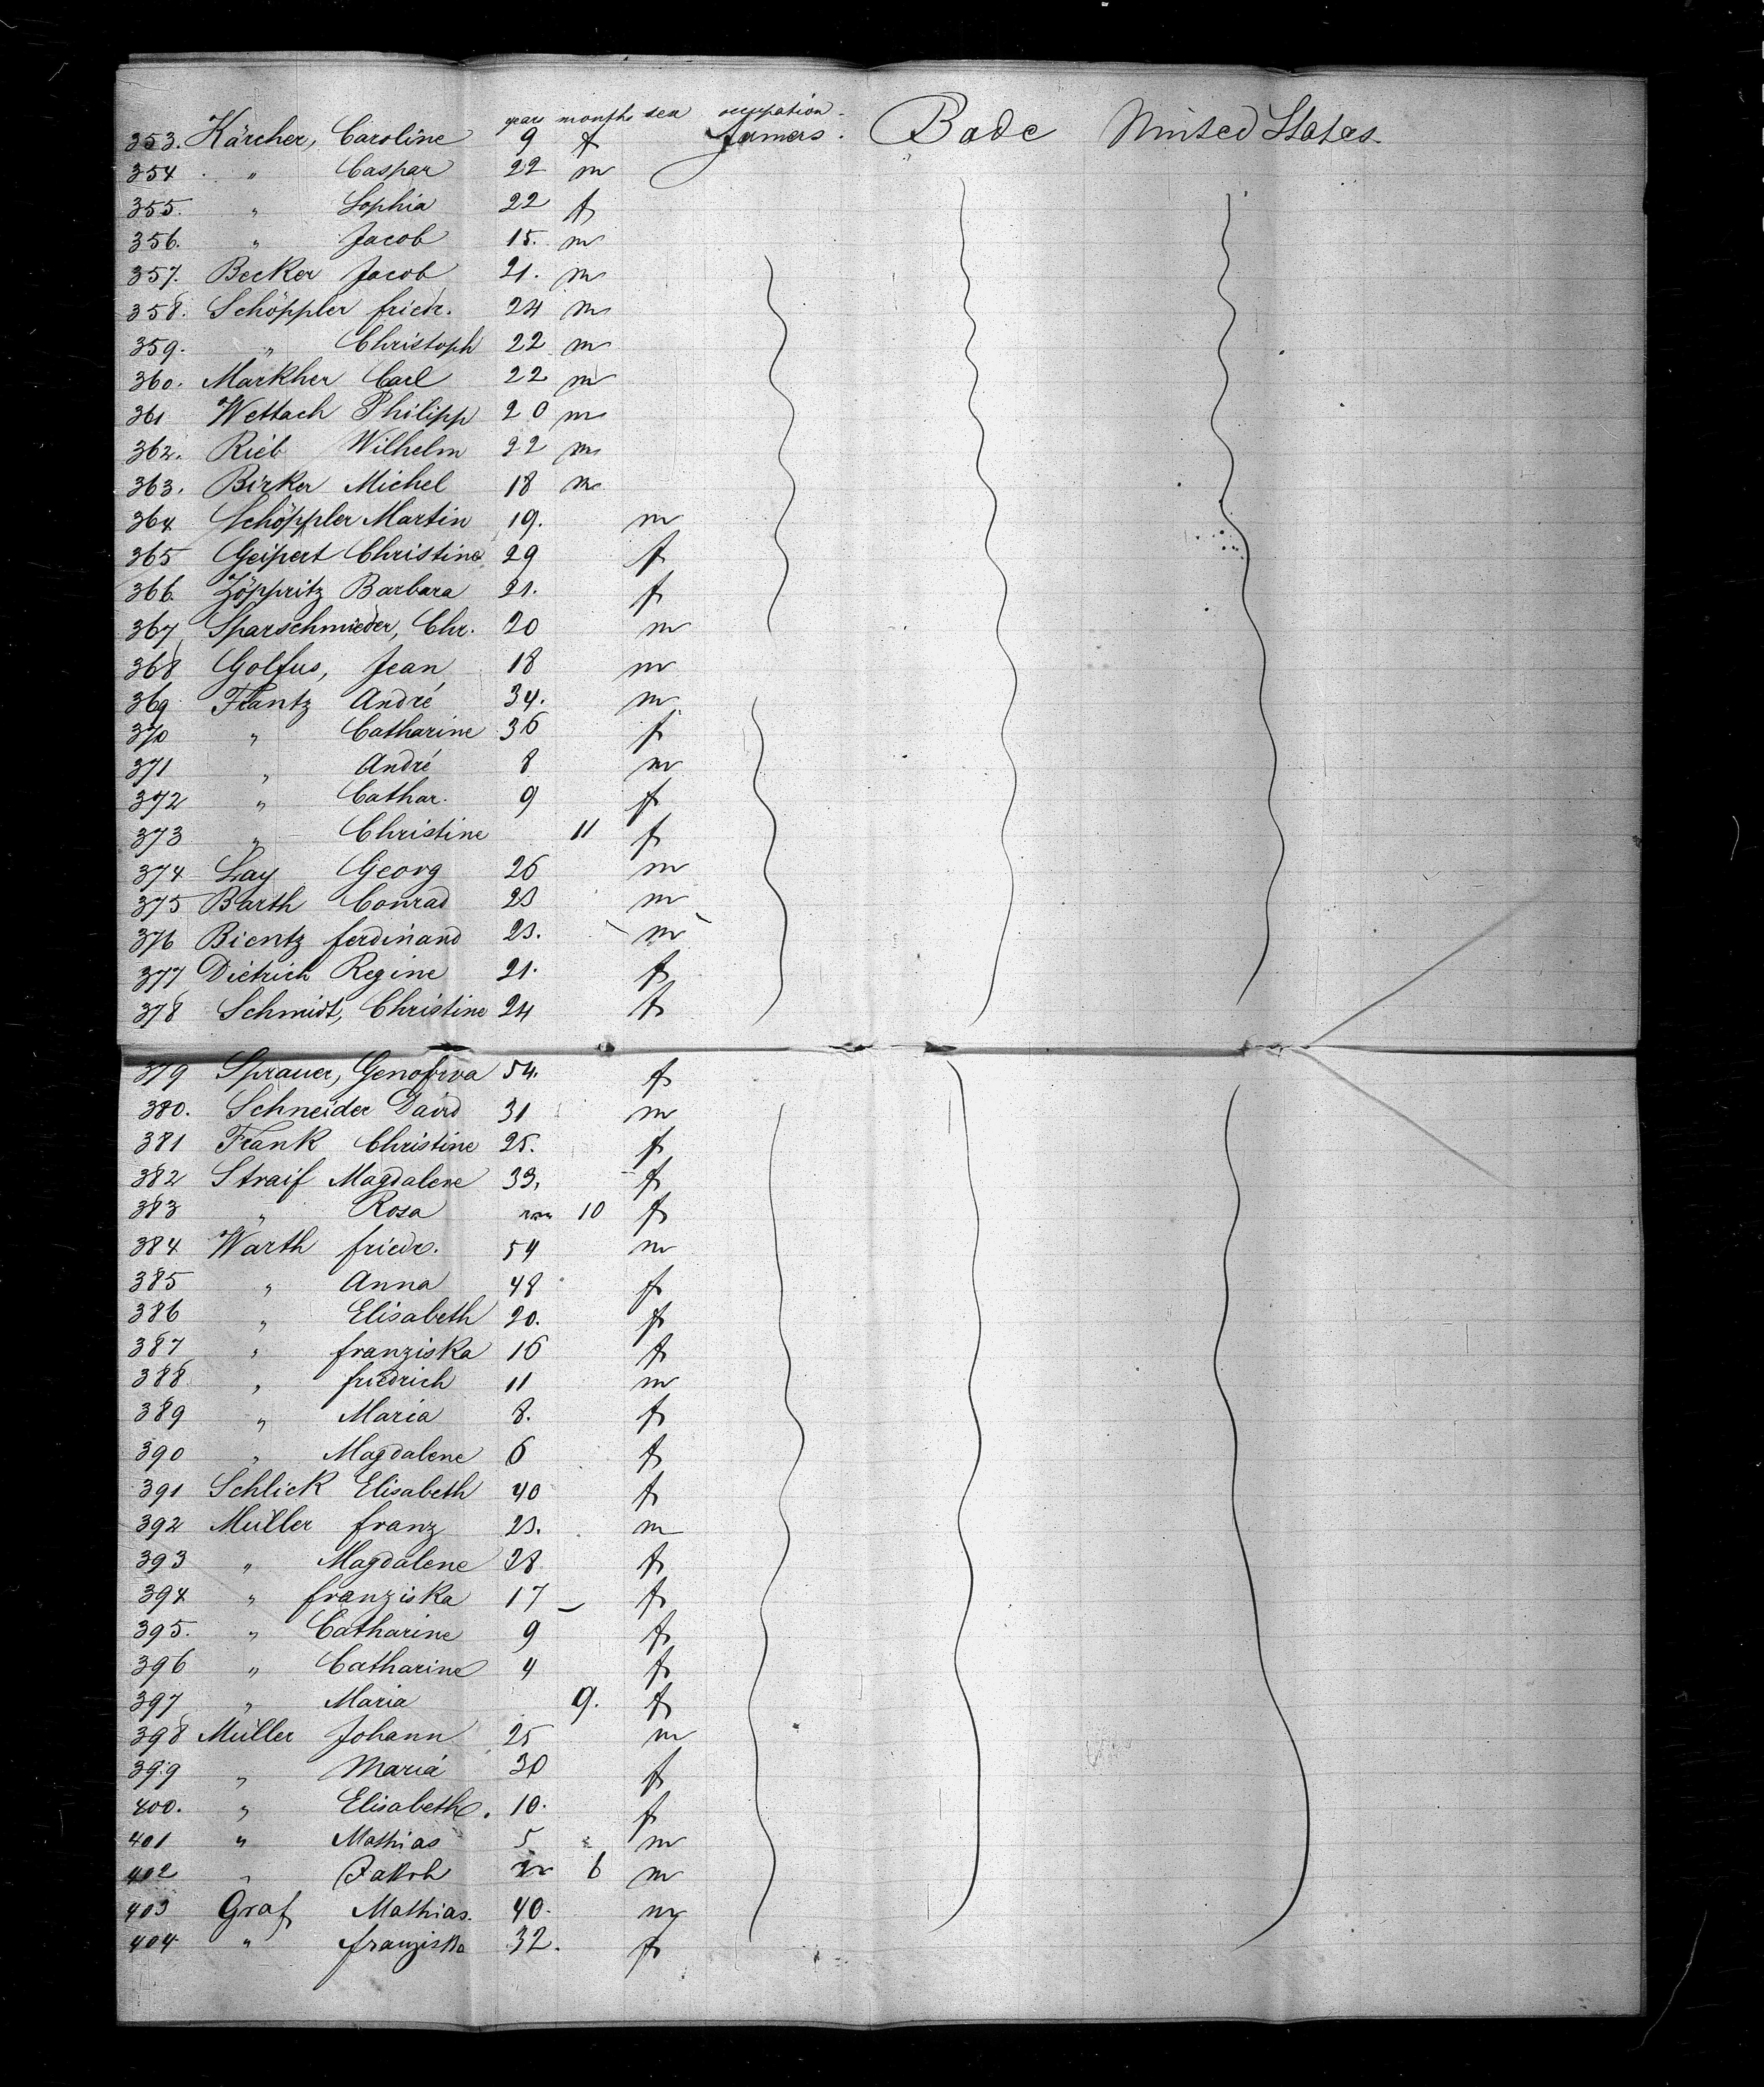 years months sex occupation
353. Kärcher, Caroline 9 f farmers. Bade United States.
354 " Caspar 22 m
355. " Sophia 22 f
356. " Jacob 15. m
357. Becker Jacob 21. m
358. Schöppler friedr. 24 m
359. " Christoph 22 m
360. Markher Carl 22 m
361 Wettach Philipp 20 m
362. Rieb Wilhelm 22 m
363. Birker Michel 18 m
364 Schöppler Martin 19. m
365 Geipert Christine 29 f
366 Zöppritz Barbara 21. f
367 Sparschmieder, Chr. 20 m
368 Golfus, Jean 18 m
369 Frantz André 34. m
370 " Catharine 36 f
371 " André 8 m
372 " Cathar. 9 f
373 " Christine 11 f
374 Lay Georg 26 m
375 Barth Conrad 23 m
376 Bientz ferdinand 23. m
377 Dietrich Regine 21. f
378 Schmidt, Christine 24 f
379 Sprauer, Genofeva 54. f
380. Schneider David 31 m
381 Frank Christine 25. f
382 Straif Magdalene 33. f
383 " Rosa 10 f
384 Warth friedr. 54 m
385 " Anna 48 f
386 " Elisabeth 20. f
387 " franziska 16 f
388 " friedrich 11 m
389 " Maria 8. f
390 " Magdalene 6 f
391 Schlick Elisabeth 40 f
392 Müller franz 23. m
393 " Magdalene 28 f
394 " franziska 17 f
395. " Catharine 9 f
396 " Catharine 4 f
397 " Maria 9. f
398 Müller Johann 25 m
399 " Maria 30 f
400. " Elisabeth. 10. f
401 " Mathias 5 m
402 " Jakob 6 m
403 Graf Mathias. 40. m
404 " franziska 32. f